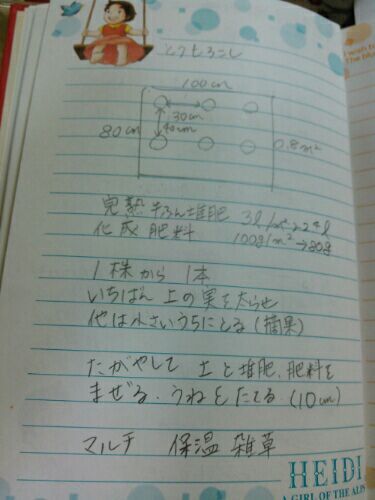 とうもろこし
100cm
30cm
40cm
80cm
0.8m²
完熟牛ふん堆肥 3l/m²→2.4l
化成肥料 100g/m²→80g
1株から1本
いちばん上の実を太らせ
他は小さいうちにとる(摘果)
たがやして 土と堆肥、肥料を
まぜる。うねをたてる。(10cm)
マルチ 保温 雑草
HEIDI
A GIRL OF THE ALPS